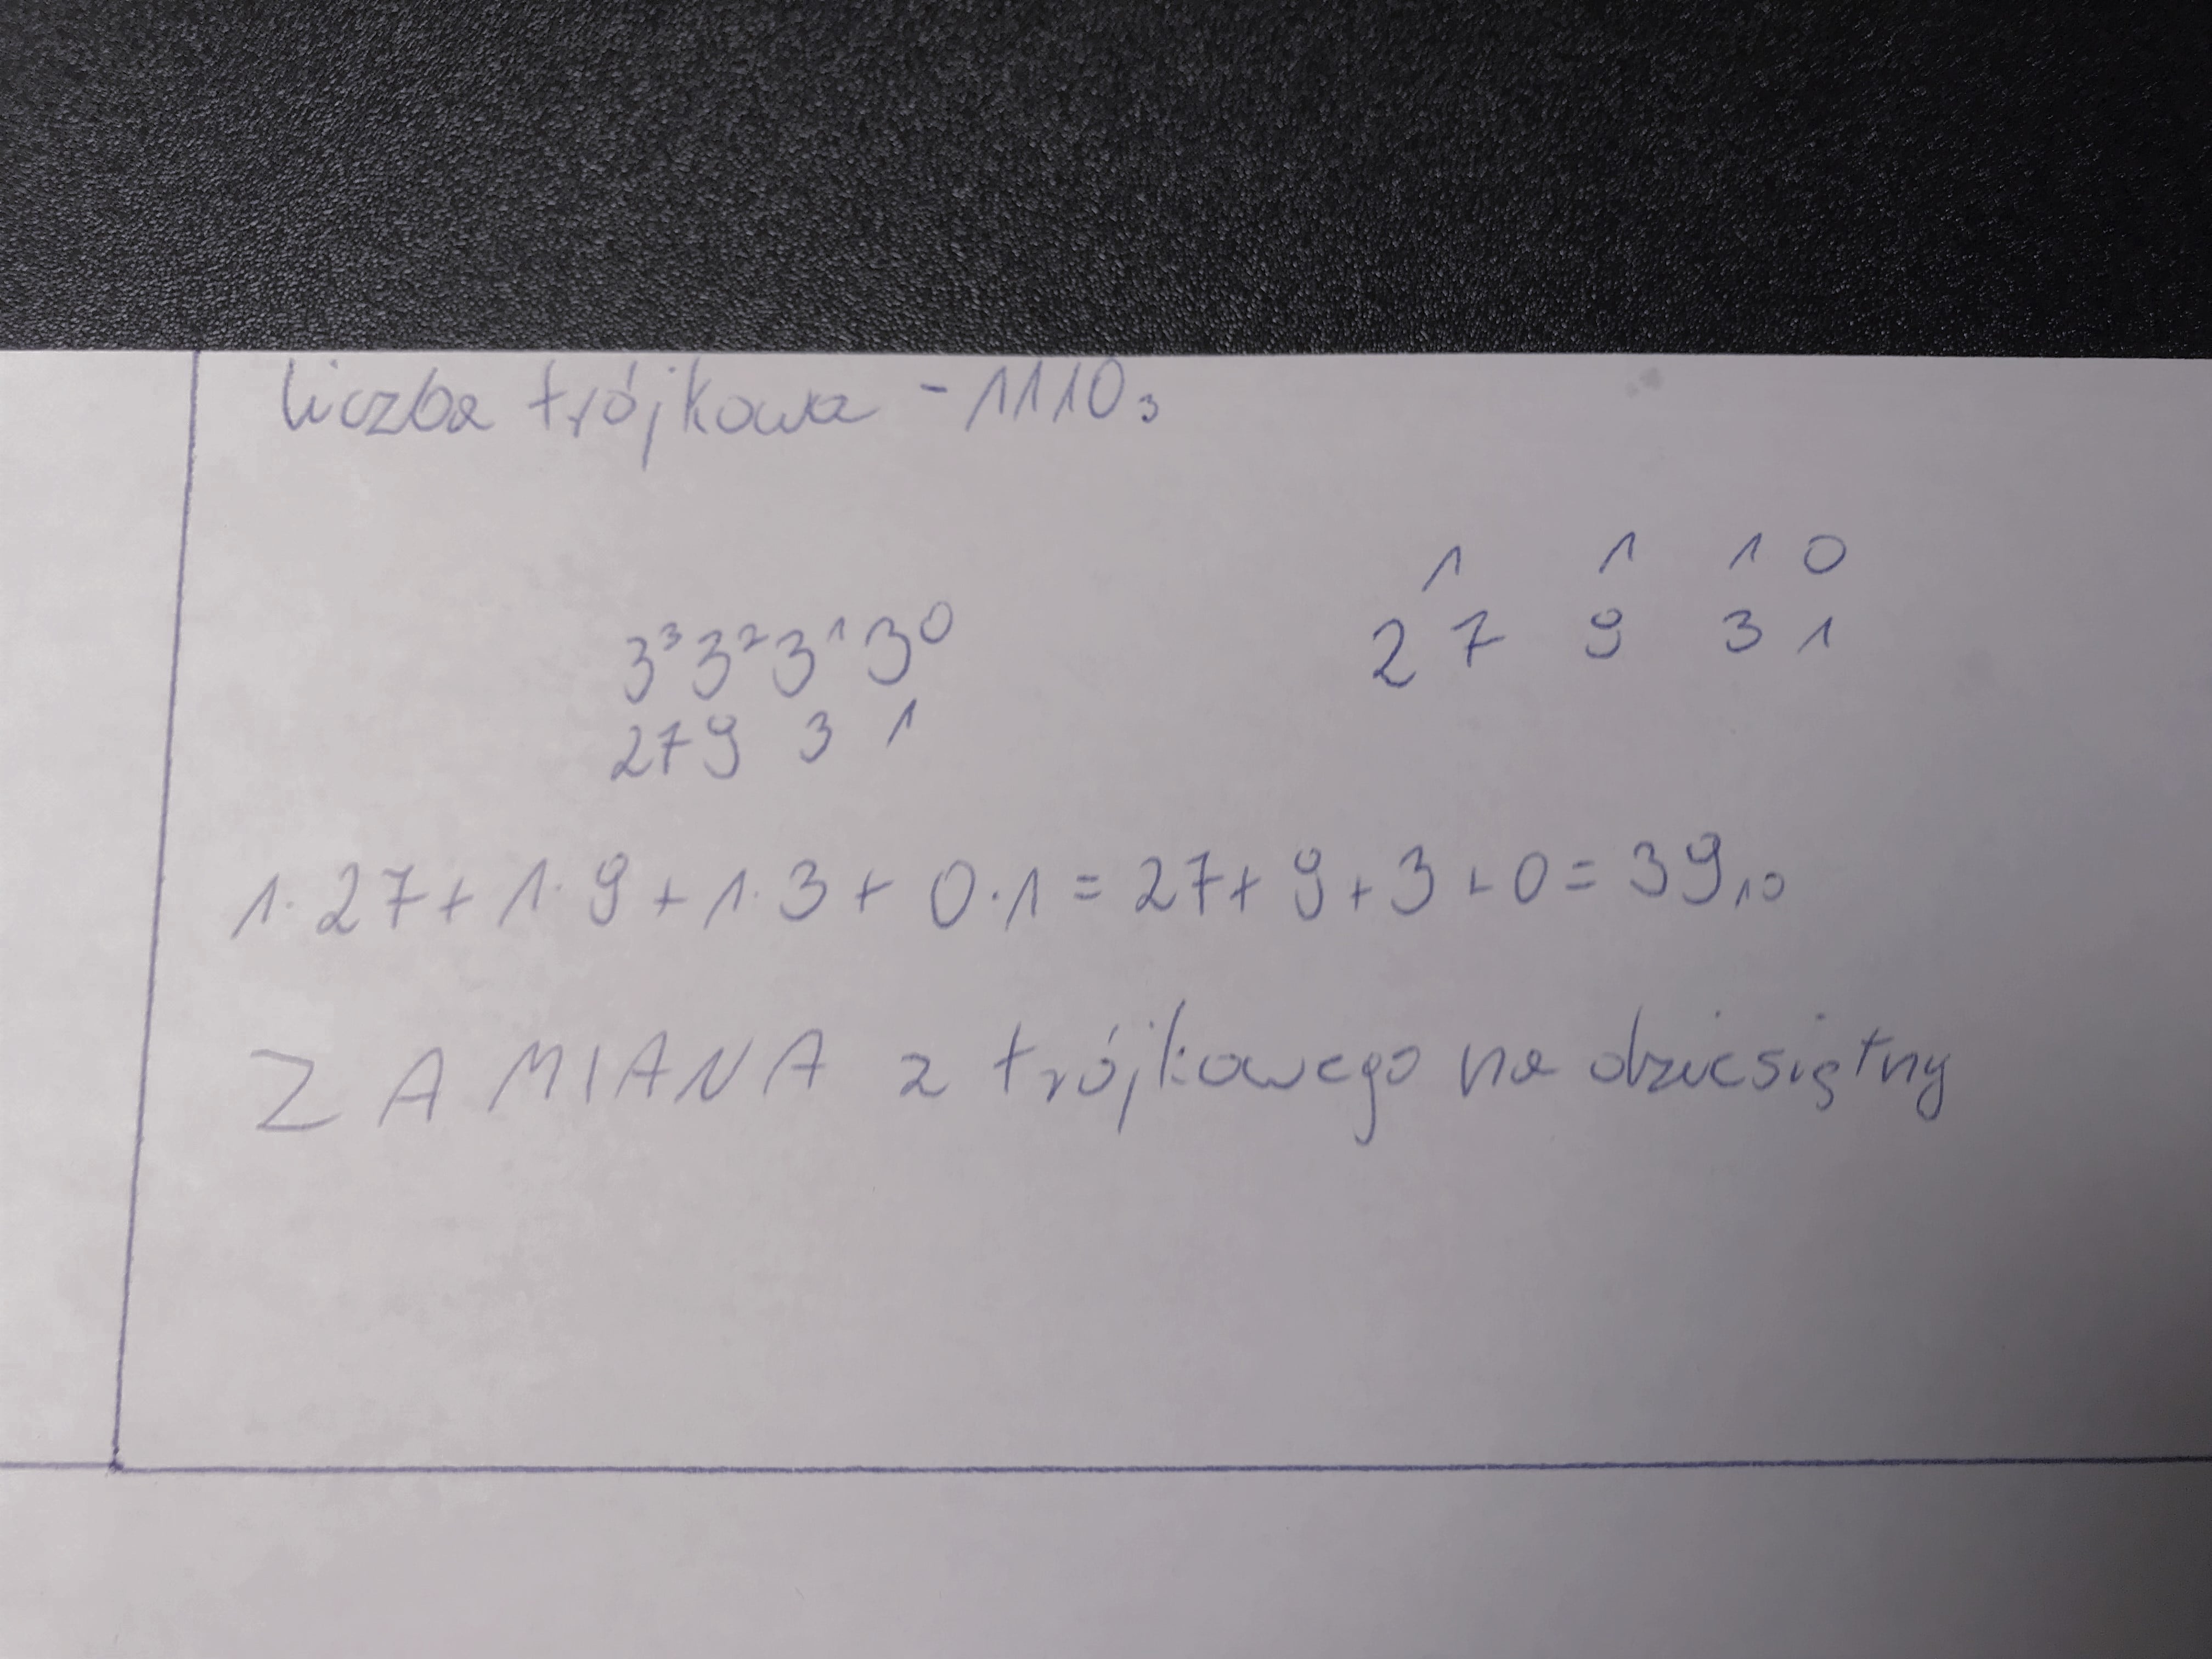 liczba trójkowa - 1110₃
1 1 1 0
27 9 3 1
3³ 3² 3¹ 3⁰
27 9 3 1
1·27 + 1·9 + 1·3 + 0·1 = 27 + 9 + 3 + 0 = 39₁₀
ZAMIANA z trójkowego na dziesiętny